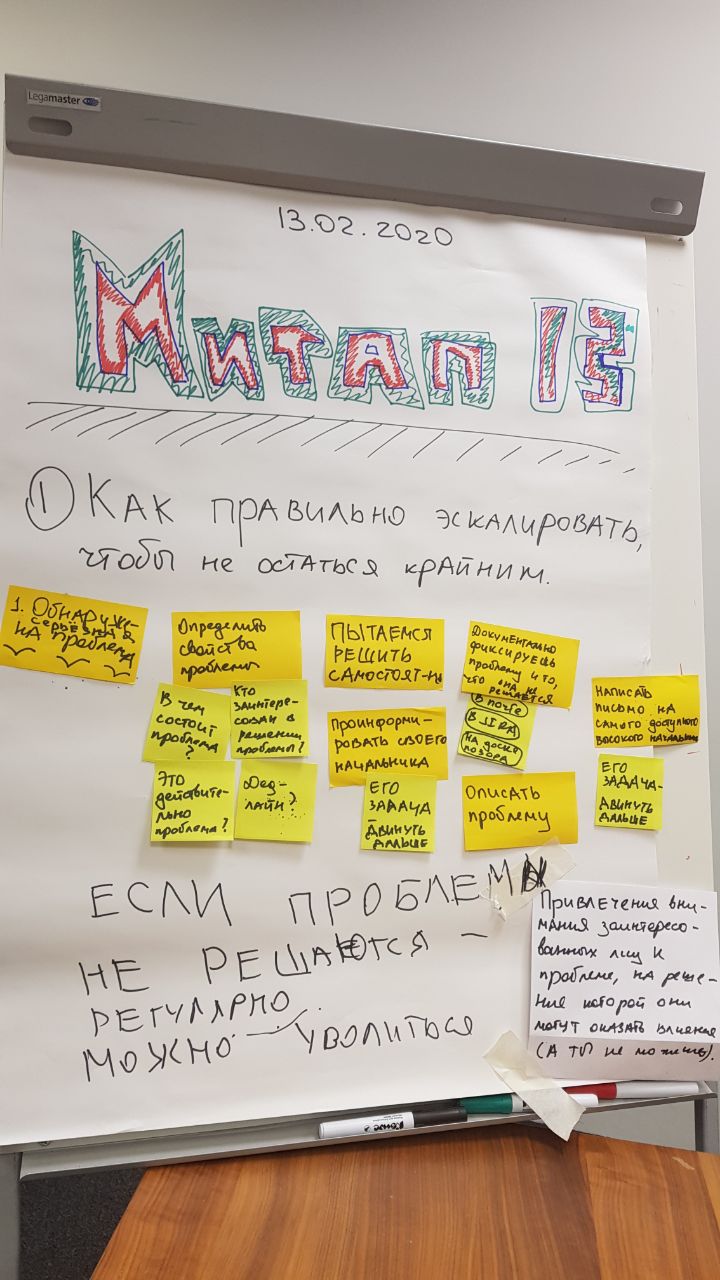 Legamaster
13.02.2020
Митап 13
1 Как правильно эскалировать,
чтобы не остаться крайним.
1. Обнаруже-
на серьёзная
проблема
Определить
свойства
проблемы
В чем
состоит
проблема
?
Кто
заинтере-
сован в
решении
проблемы?
Это
действите-
льно
проблема?
Дед-
лайн?
Пытаемся
решить
самостоят-но
Проинформи-
ровать своего
начальника
Его
задача
-
двинуть
дальше
Документально
фиксируешь
проблему и то,
что она не
решается
в почте
в JIRA
на доске
позора
Описать
проблему
Написать
письмо на
самого доступного
высокого начальника
Его
задача-
двинуть
дальше
Если проблемы
не решаются -
регулярно
можно уволиться
Привлечения вни-
мания заинтересо-
ванных лиц к
проблеме, на реше-
ние которой они
могут оказать влияние
(а ты не можешь).